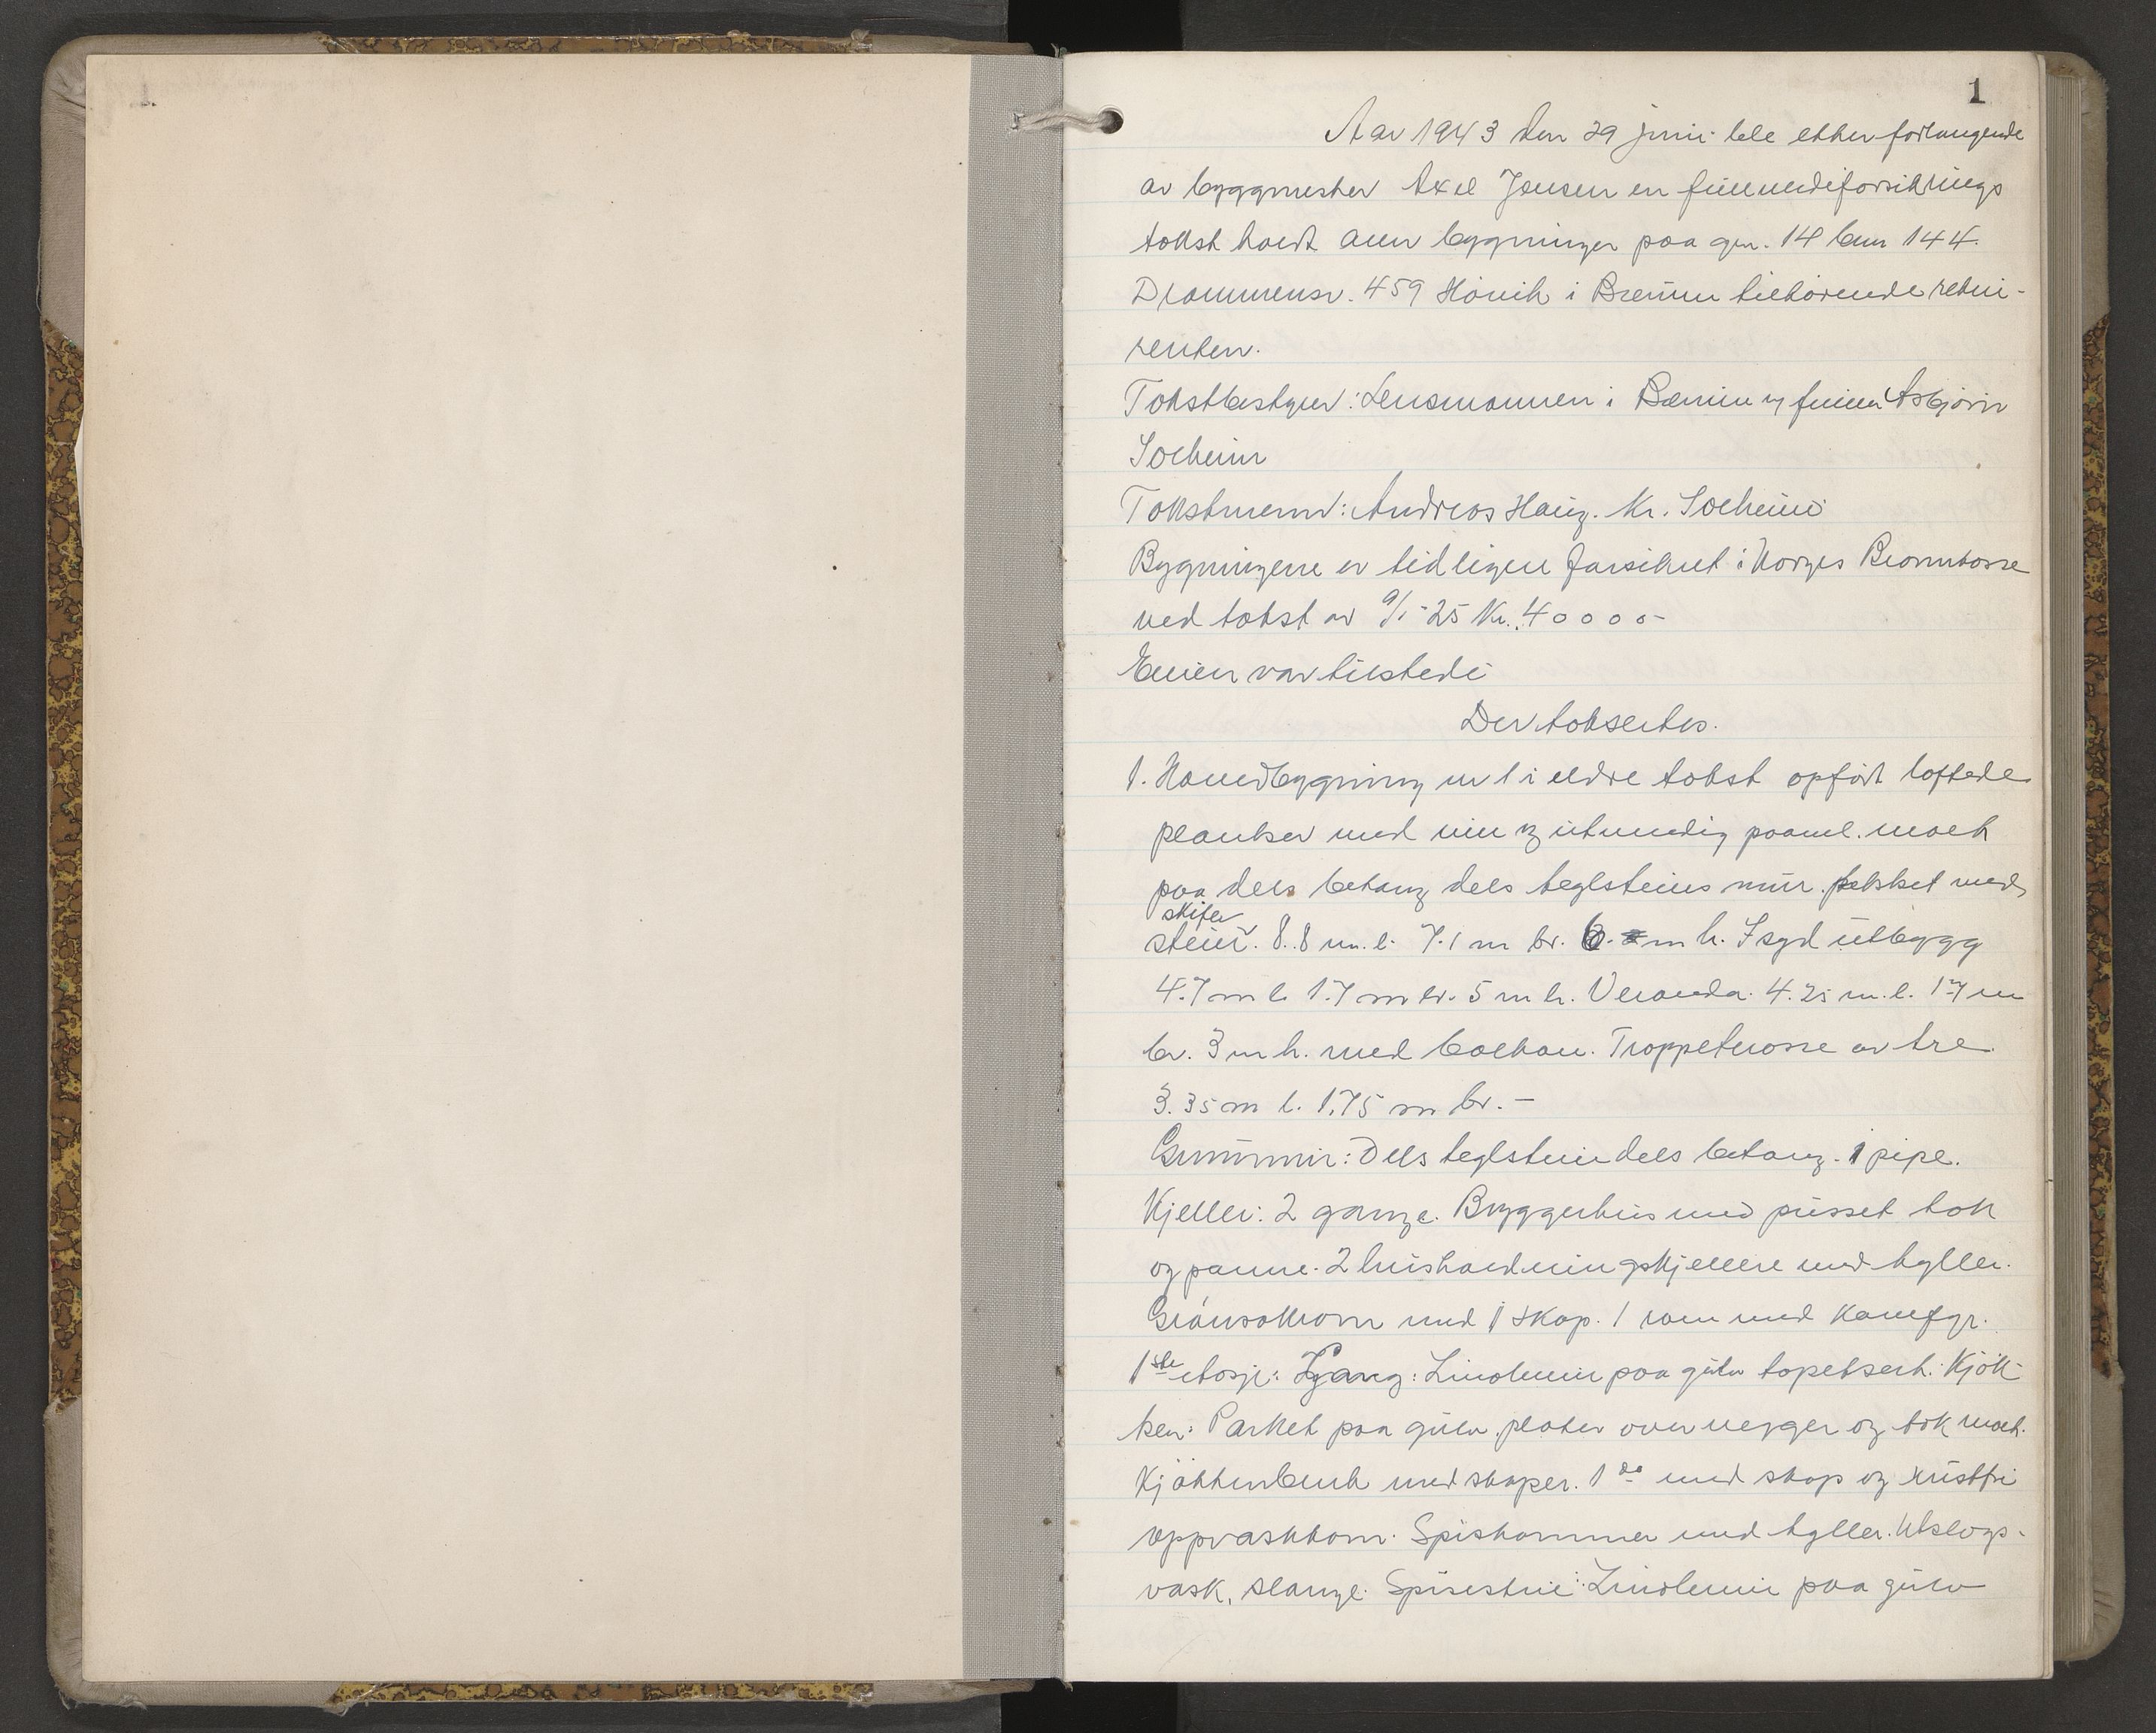 1
Aar 1943 den 29 juni ble etter forlangende
av byggmester Axel Jensen en fullverdiforsikrings
takst holdt over bygninger paa gn. 14 bnr 144.
Drammensv. 459 Hövik i Bærum tilhörende rekvi-
renten.
Takstbestyrer: Lensmannen i Bærum ved fullm Asbjörn
Solheim
Takstmenn: Andreas Haug. Kr. Solheim
Bygningene er tidligere forsikret i Norges Brannkasse
ved takst av 9/1-25 Kr. 40000-
Eieren var tilstede
Der taksertes.
1. Hovedbygning nr 1 i eldre takst opfört loftede
planker med inn og utvendig panel. malt
paa dels betong dels teglsteins mur. tekket med
skifer
stein. 8.8 m. l. 7.1 m br. 6. m h. I syd utbygg
4.7 m l. 1.7 m br. 5 m h. Veranda. 4.25 m. l. 1.7 m
br. 3 m h. med balkon. Trappeterasse av tre
3.35 m l. 1.75 m br.-
Grunnmur: Dels teglstein dels betong. 1 pipe.
Kjeller: 2 gange. Bryggerhus med pusset tak
og panne. 2 husholdningskjellere med hyller.
Grönsakrom med 1 skap. 1 rom med Kamfgr.
1ste etasje: Gang: Linoleum paa gulv tapetsert. Kjök-
ken: Parket paa gulv. plater over vegger og tak malt.
Kjökkenbenk med skaper. 1 do med skap og rustfri
oppvaskkom. Spiskammer med hyller. Utslags-
vask, slange. Spisestue: Linoleum paa gulv